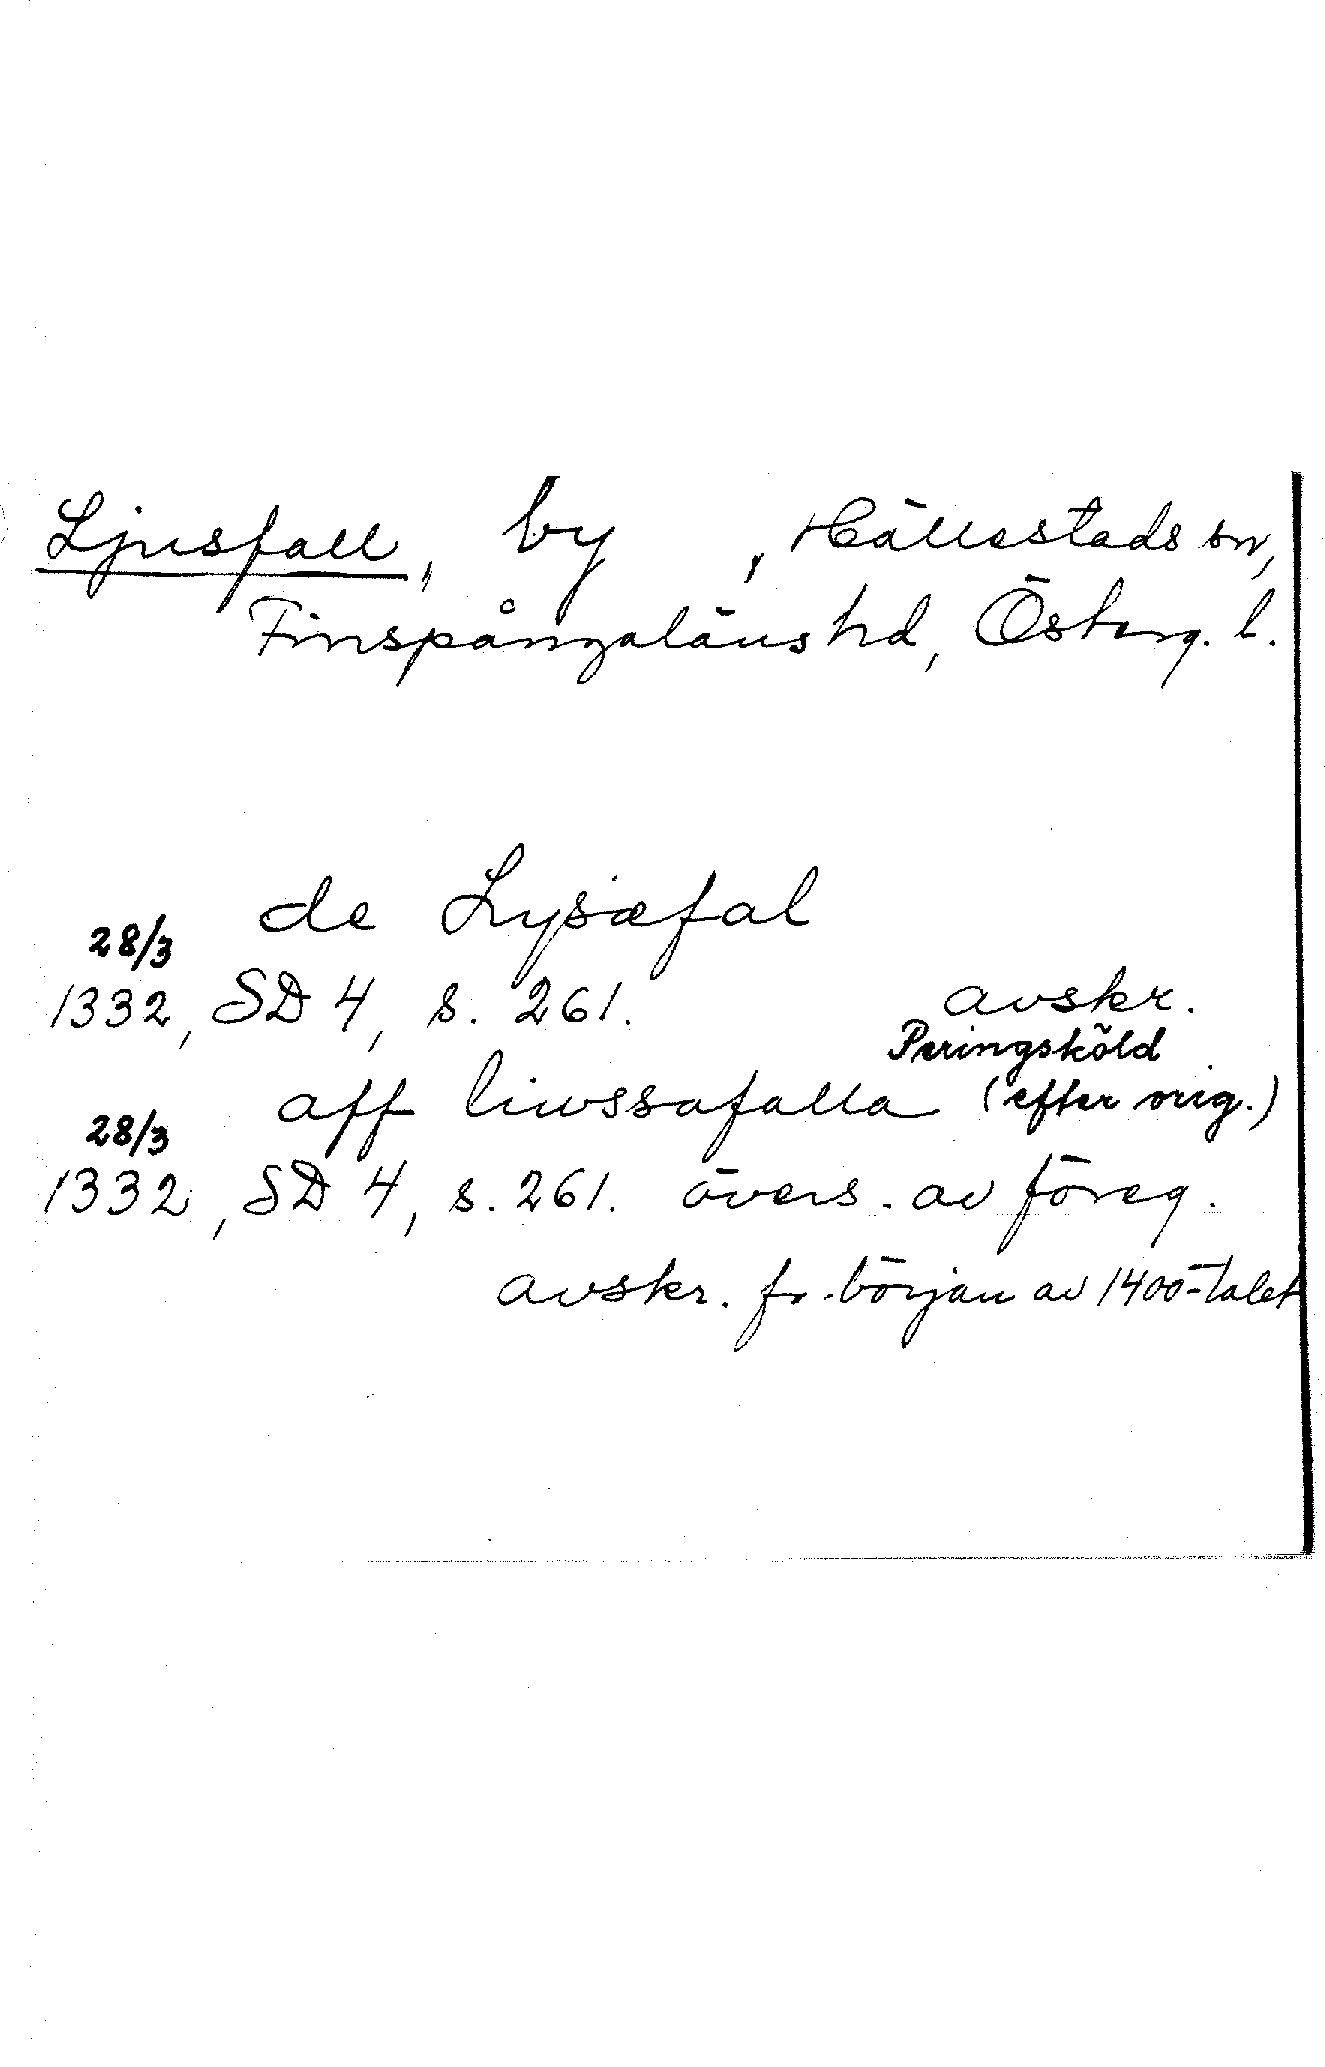 Ljusfall, by , Hällestads sn,
Finspångaläns hd, Österg. l.
de Lysæfal
28/3
1332, SD 4, s. 261. avskr.
Peringsköld
aff liwssafalla (efter orig.)
28/3
1332, SD 4, s. 261. övers. av föreg.
avskr. fr. början av 1400-talet